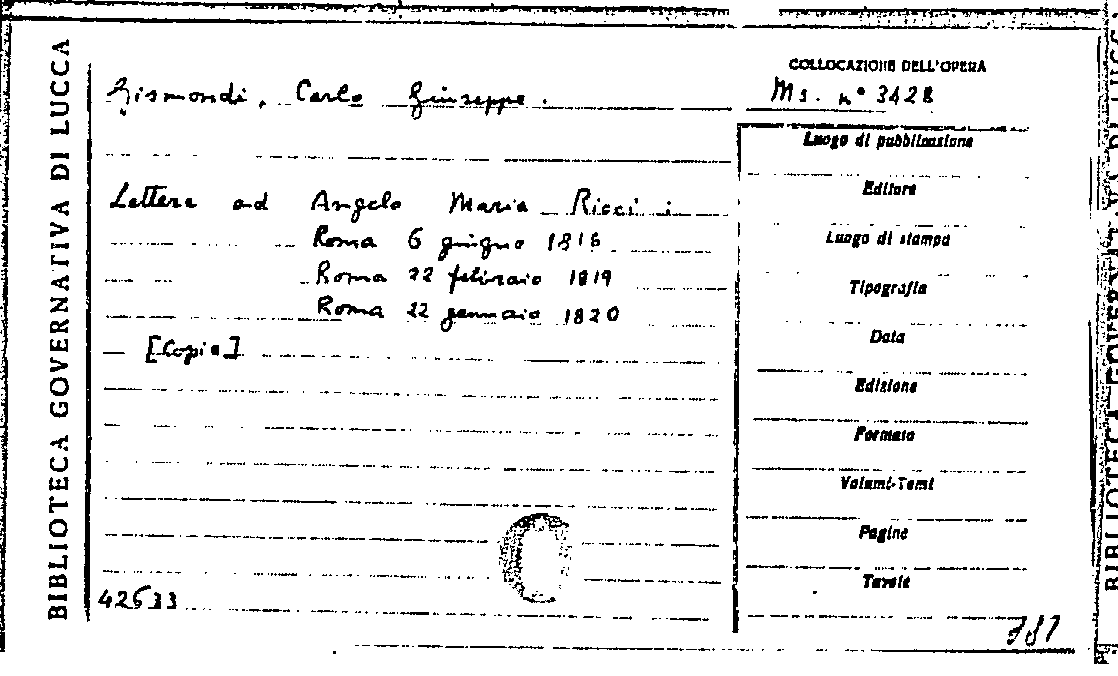 BIBLIOTECA GOVERNATIVA DI LUCCA
Gismondi, Carlo Giuseppe.
COLLOCAZIONE DELL'OPERA
Ms. n° 3428
Lettere ad Angelo Maria Ricci:
Roma 6 giugno 1816
Roma 22 febbraio 1819
Roma 22 gennaio 1820
[Copie]
42633
Luogo di pubblicazione
Editore
Luogo di stampa
Tipografia
Data
Edizione
Formato
Volumi-Tomi
Pagine
Tavole
787